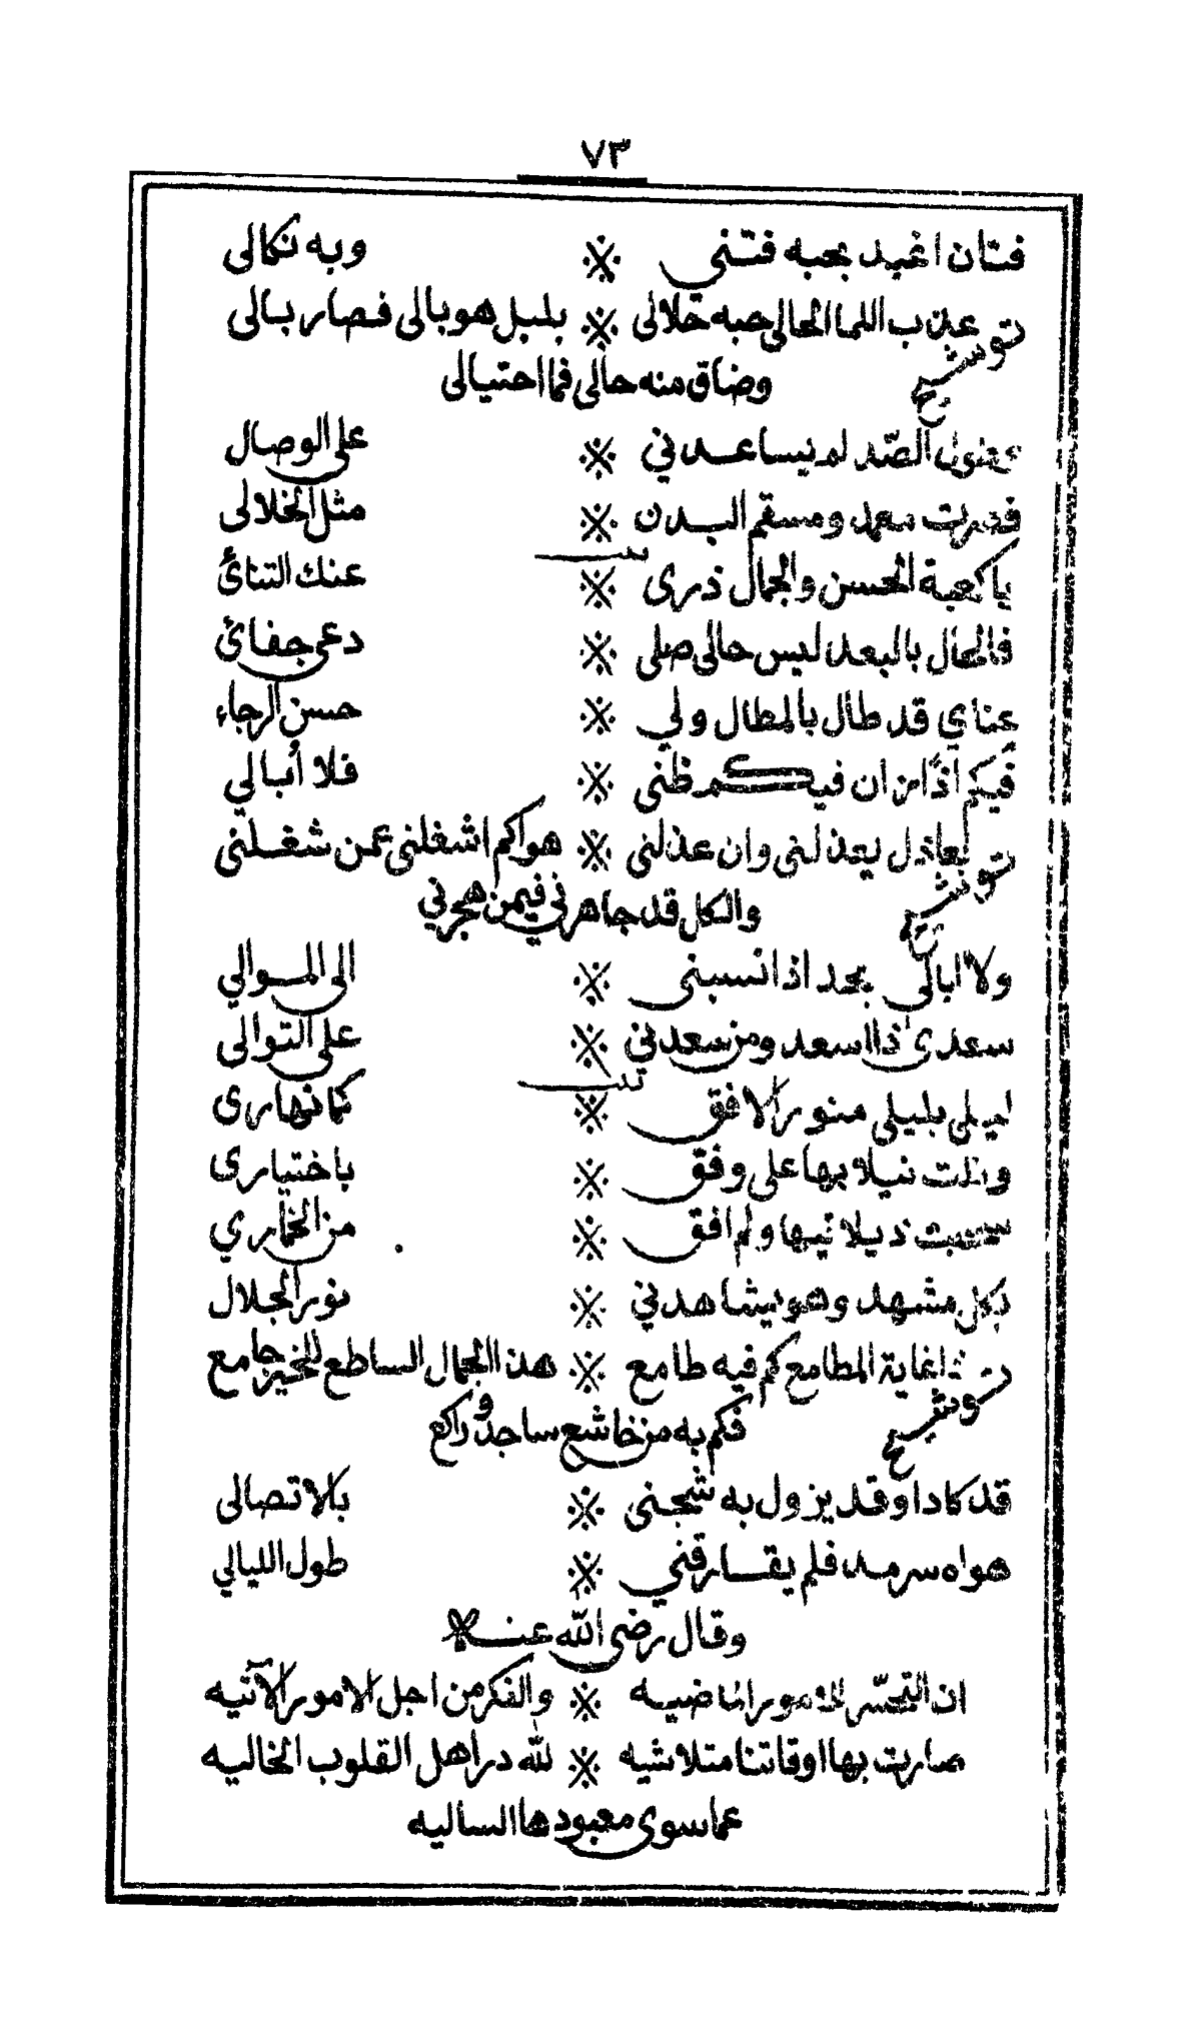 ٧٣
فتان اغيد بحبه فتنى ※ وبه نكالى
توشيح عذب اللما الحالى حبه حلالى ※ بلبل هو بالى فصار بالى
وضاق منه حالى فما احتيالى
بطول الصّد لم يساعدني ※ على الوصال
فصرت سهد ومسقم البدن ※ مثل الخلالى
بيت
يا كعبة الحسن والجمال ذرى ※ عنك التنائ
فالحال بالبعد ليس حالى صلى ※ دعى جفائ
عناي قد طال بالمطال ولي ※ حسن الرجاء
فيكم اذا من ان فيكم ظنى ※ فلا أبالي
توشيح لعاذل يعذلنى وان عذلنى ※ هواكم اشغلنى عمن شغلنى
والكل قد جاهرني فيمن هجرني
ولا ابالى بجد اذا نسبنى ※ الى الموالي
سعدى اذا اسعد ومن سعدني ※ على التوالى
بيت
ليلى بليلى منور الافق ※ كما نهارى
ونلت نيلا بها على وفق ※ باختيارى
سحبت ذيلا تيها ولم افق ※ من الخماري
بكل مشهد وهو يشاهدني ※ نور الجلال
توشيح ذا غاية المطامع كم فيه طامع ※ هذا الجمال الساطع للخير جامع
فكم به من خاشع ساجد وراكع
قد كاد او قد يزول به شجنى ※ بالاتصالى
هواه سرمد فلم يفارقني ※ طول الليالي
وقال رضى الله عنه
ان التحسّر للامور الماضيه ※ والفكر من اجل الامور الآتيه
صارت بها اوقاتنا متلاشيه ※ لله در اهل القلوب الخاليه
عما سوى معبودها الساليه